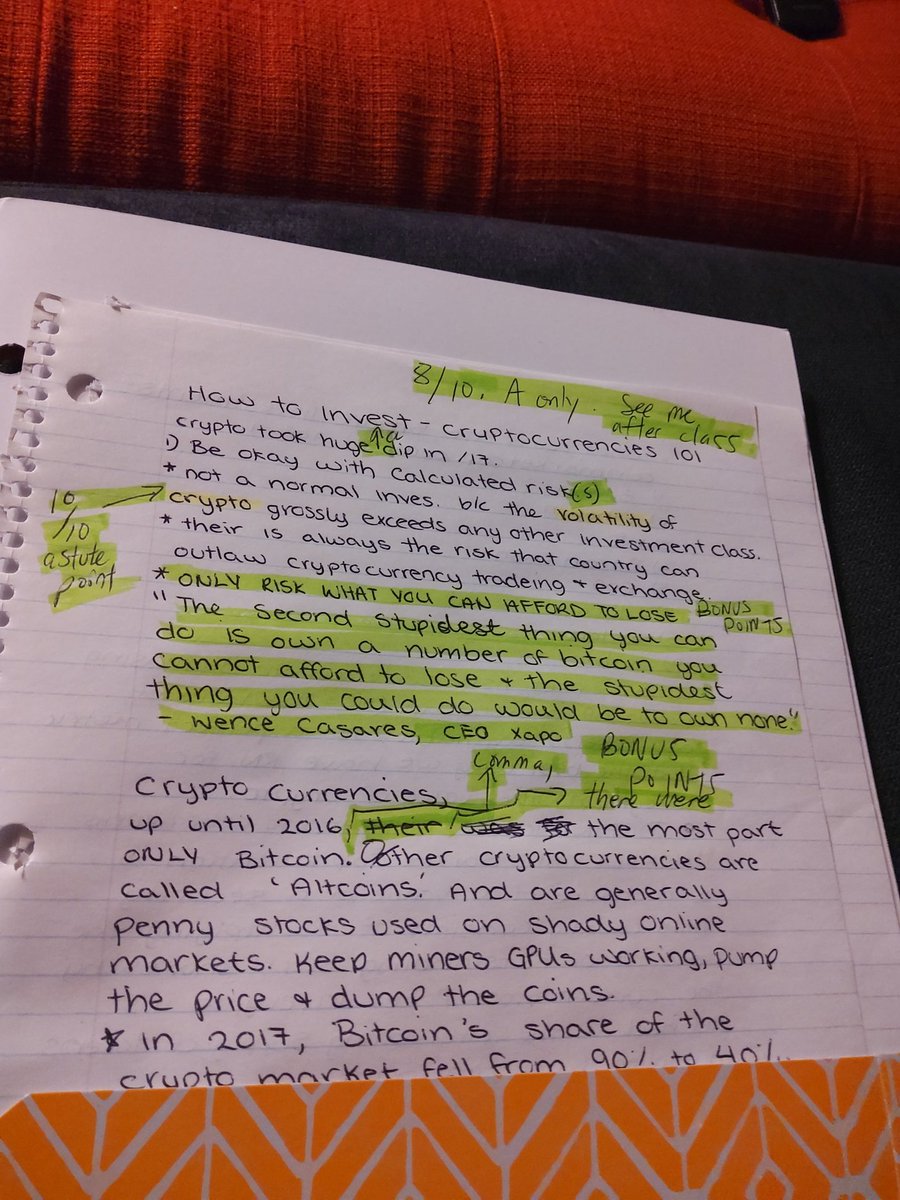 8/10. A only. See me
after class
How to Invest - cruptocurrencies 101
crypto took huge dip in /17.
a
1) Be okay with calculated risk(s)
* not a normal inves. b/c the volatility of
10
/10
astute
point
crypto grossly exceeds any other investment class.
* their is always the risk that country can
outlaw cryptocurrency tradeing + exchange.
* ONLY RISK WHAT YOU CAN AFFORD TO LOSE
BONUS
POINTS
"The second stupidest thing you can
do is own a number of bitcoin you
cannot afford to lose + the stupidest
thing you could do would be to own none."
- Wence Casares, CEO Xapo
BONUS
POINTS
comma,
there were
Crypto currencies,
up until 2016, their the most part
ONLY Bitcoin. Other cryptocurrencies are
called 'Altcoins.' And are generally
penny stocks used on shady online
markets. Keep miners GPUs working, pump
the price & dump the coins.
* In 2017, Bitcoin's share of the
crypto market fell from 90% to 40%.